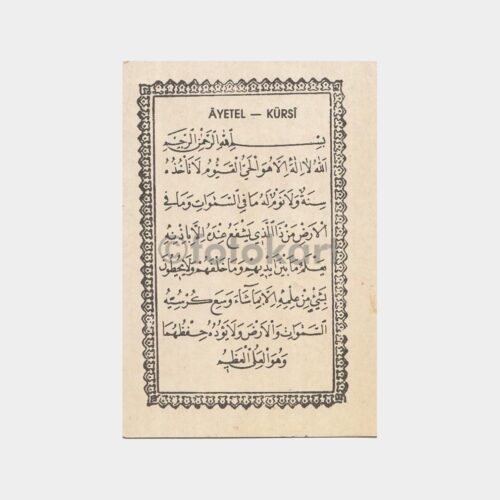 ÂYETEL — KÜRSÎ
بِسْمِ اللهِ الرَّحْمٰنِ الرَّحِيمِ
اَللهُ لَا اِلٰهَ اِلَّا هُوَ اَلْحَيُّ الْقَيُّومُ لَا تَأْخُذُهُ
سِنَةٌ وَلَا نَوْمٌ لَهُ مَا فِي السَّمٰوَاتِ وَمَا فِي
الْاَرْضِ مَنْ ذَا الَّذِي يَشْفَعُ عِنْدَهُ اِلَّا بِاِذْنِهِ
©fotokart
يَعْلَمُ مَا بَيْنَ اَيْدِيهِمْ وَمَا خَلْفَهُمْ وَلَا يُحِيطُونَ
بِشَيْءٍ مِنْ عِلْمِهِ اِلَّا بِمَا شَاءَ وَسِعَ كُرْسِيُّهُ
السَّمٰوَاتِ وَالْاَرْضَ وَلَا يَؤُدُهُ حِفْظُهُمَا
وَهُوَ الْعَلِيُّ الْعَظِيمُ